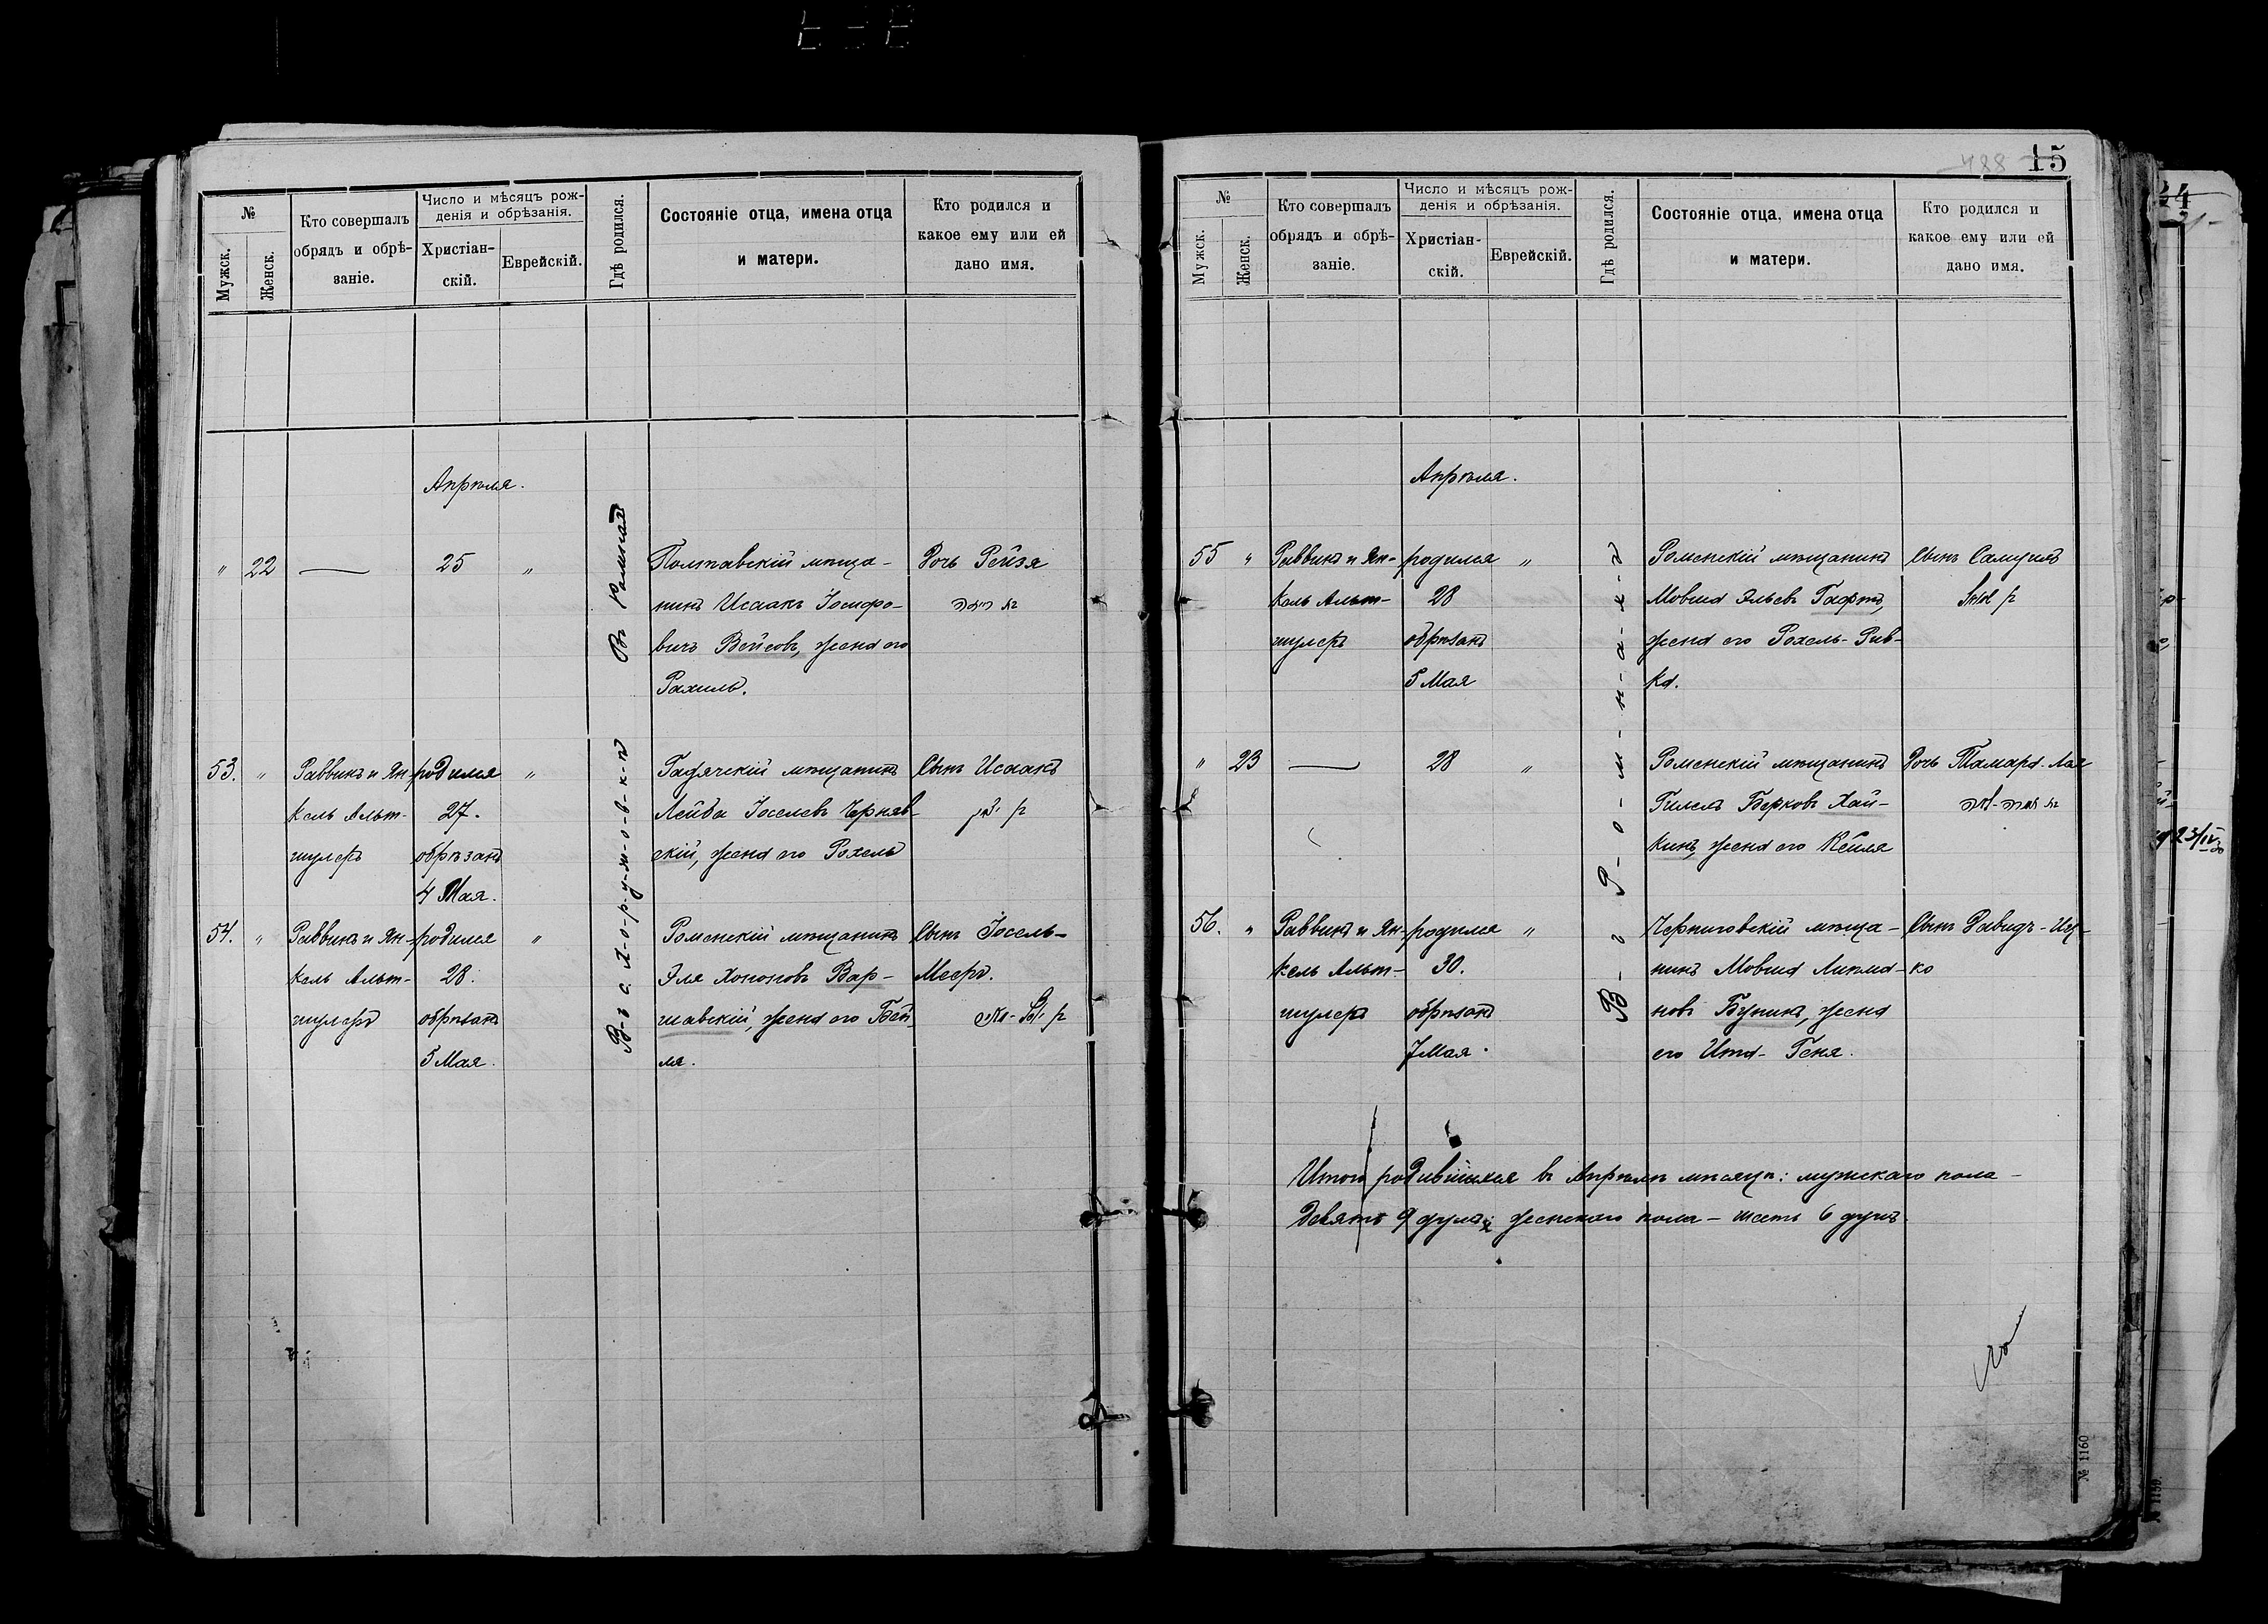 №
Мужск.
Женск.
Кто совершалъ
обрядъ и обрѣ-
заніе.
Число и мѣсяцъ рож-
денія и обрѣзанія.
Христіан-
скій.
Еврейскій.
Гдѣ родился.
Состояніе отца, имена отца
и матери.
Кто родился и
какое ему или ей
дано имя.
Апрѣля.
" 22 — 25 "
Въ Ромнахъ
Полтавскій мѣща-
нинъ Исаакъ Іосифо-
вичъ Вейсовъ, жена его
Рахиль.
Дочь Рейзя
53. " Раввинъ и Ян-
кель Альт-
шулеръ
родился
27.
обрѣзанъ
4 Мая.
"
Гадячскій мѣщанинъ
Лейба Іоселевъ Черняв-
скій, жена его Рохель
Сынъ Исаакъ
54. " Раввинъ и Ян-
кель Альт-
шулеръ
родился
28.
обрѣзанъ
5 Мая.
"
Роменскій мѣщанинъ
Эля Хононовъ Вар-
шавскій, жена его Бей-
ля.
Сынъ Іосель-
Мееръ.
15
№
Мужск.
Женск.
Кто совершалъ
обрядъ и обрѣ-
заніе.
Число и мѣсяцъ рож-
денія и обрѣзанія.
Христіан-
скій.
Еврейскій.
Гдѣ родился.
Состояніе отца, имена отца
и матери.
Кто родился и
какое ему или ей
дано имя.
Апрѣля.
55 " Раввинъ и Ян-
кель Альт-
шулеръ
родился
28
обрѣзанъ
5 Мая
"
В-ъ Р-о-м-н-а-х-ъ
Роменскій мѣщанинъ
Мовша Эльевъ Гафтъ,
жена его Рохель-Рив-
ка.
Сынъ Самуилъ
" 23 — 28 "
Роменскій мѣщанинъ
Гилель Берковъ Хай-
кинъ, жена его Кейля
Дочь Тамара-Лая
56. " Раввинъ и Ян-
кель Альт-
шулеръ
родился
30.
обрѣзанъ
7 Мая.
"
Черниговскій мѣща-
нинъ Мовша Липма-
новъ Бунинъ, жена
его Ита-Геня.
Сынъ Давидъ-Иц-
ко
Итого родившихся въ Апрѣлѣ мѣсяцѣ: мужскаго пола —
девять 9 душъ; женскаго пола — шесть 6 душъ.
№ 1160